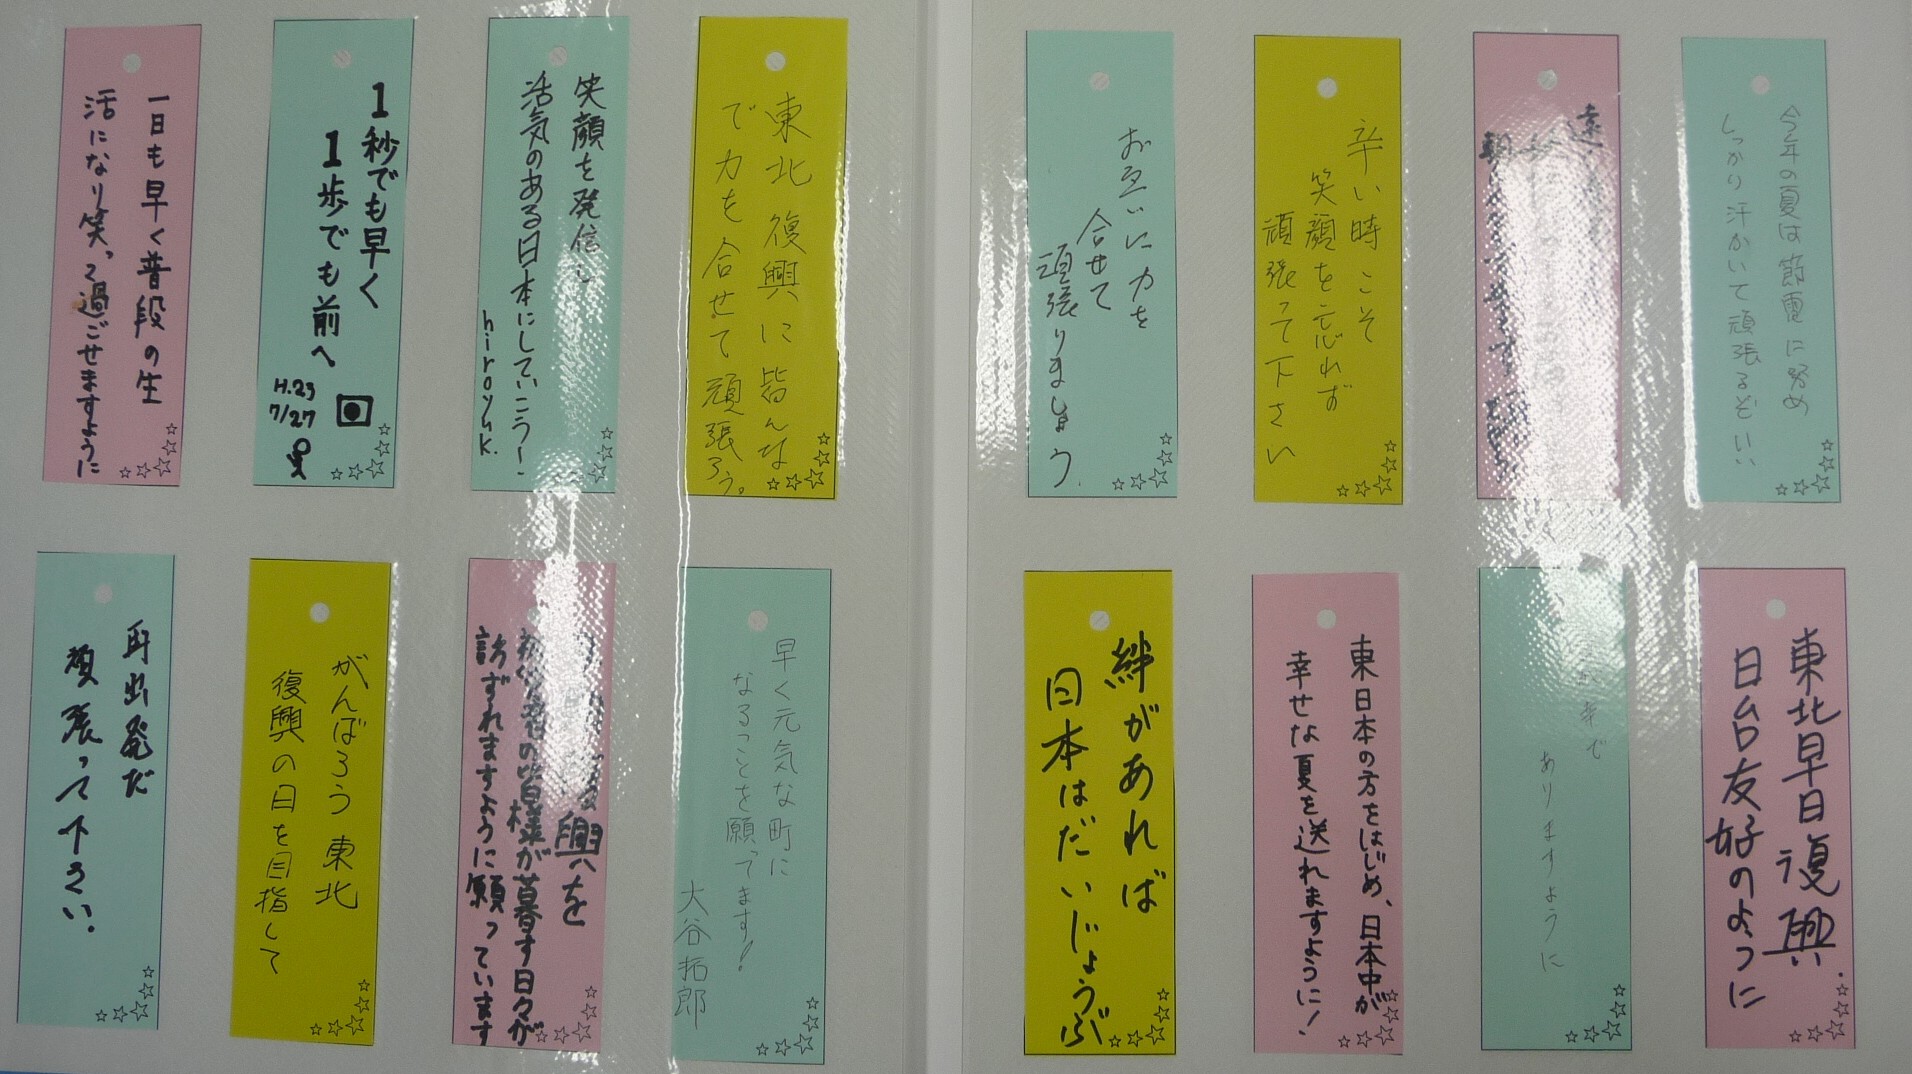 一日も早く普段の生
活になり笑って過ごせますように
1秒でも早く
1歩でも前へ
H.23
7/27
笑顔を発信し
活気のある日本にしていこう!
hiroyuk.
東北復興に皆んな
で力を合せて頑張ろう。
お互いに力を
合せて
頑張りましょう
辛い時こそ
笑顔を忘れず
頑張って下さい
今年の夏は節電に努め
しっかり汗かいて頑張るぞい
再出発だ
頑張って下さい。
がんばろう 東北
復興の日を目指して
興を
の皆様が暮す日々が
訪ずれますように願っています
早く元気な町に
なることを願ってます!
大谷拓郎
絆があれば
日本はだいじょうぶ
東日本の方をはじめ、日本中が
幸せな夏を送れますように!
で
ありますように
東北早日復興.
日台友好のように